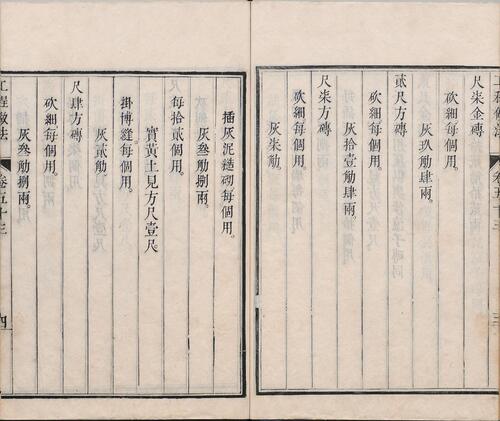 尺柒金磚
砍細每個用。
灰玖觔肆兩。
貳尺方磚
砍細每個用。
灰拾壹觔肆兩。
尺柒方磚
砍細每個用。
灰柒觔
卷五十三
三
插灰泥糙砌每個用。
灰叁觔捌兩。
每拾貳個用。
實黃土見方尺壹尺
掛博縫每個用。
灰貳觔
尺肆方磚
砍細每個用。
灰叁觔捌兩。
工程做法
卷五十三
四